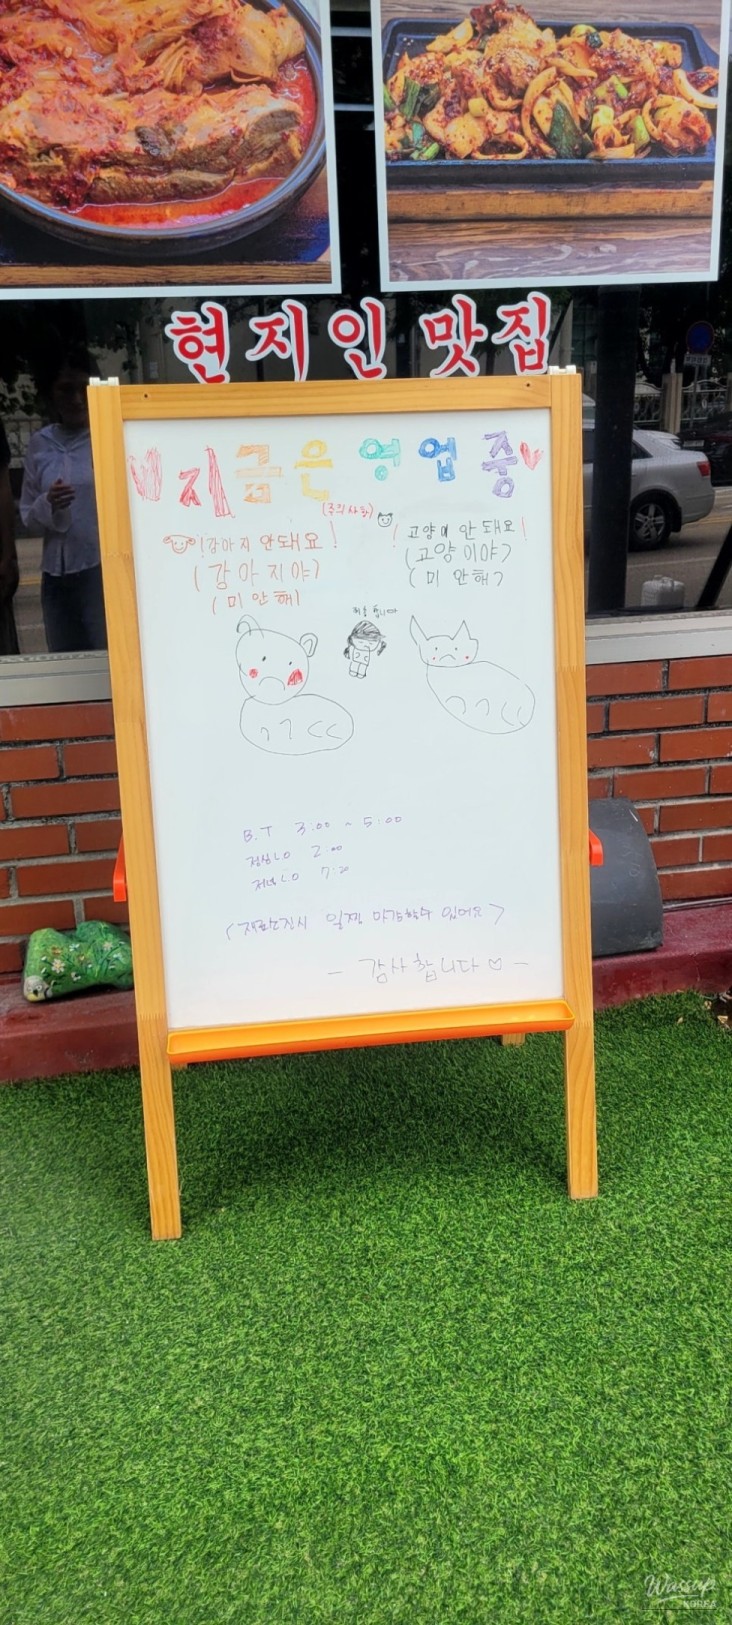 현지인 맛집
지금은 영업 중
(주의사항)
!강아지 안돼요!
(강아지야)
(미안해)
!고양이 안돼요!
(고양이야)
(미안해)
ㄱㄱㄴㄴ
ㄱㄱㄴㄴ
B.T 3:00 ~ 5:00
점심L.O 2:00
저녁L.O 7:20
<재료소진시 일찍 마감할수 있어요>
- 감사합니다♡ -
Wassup
KOREA